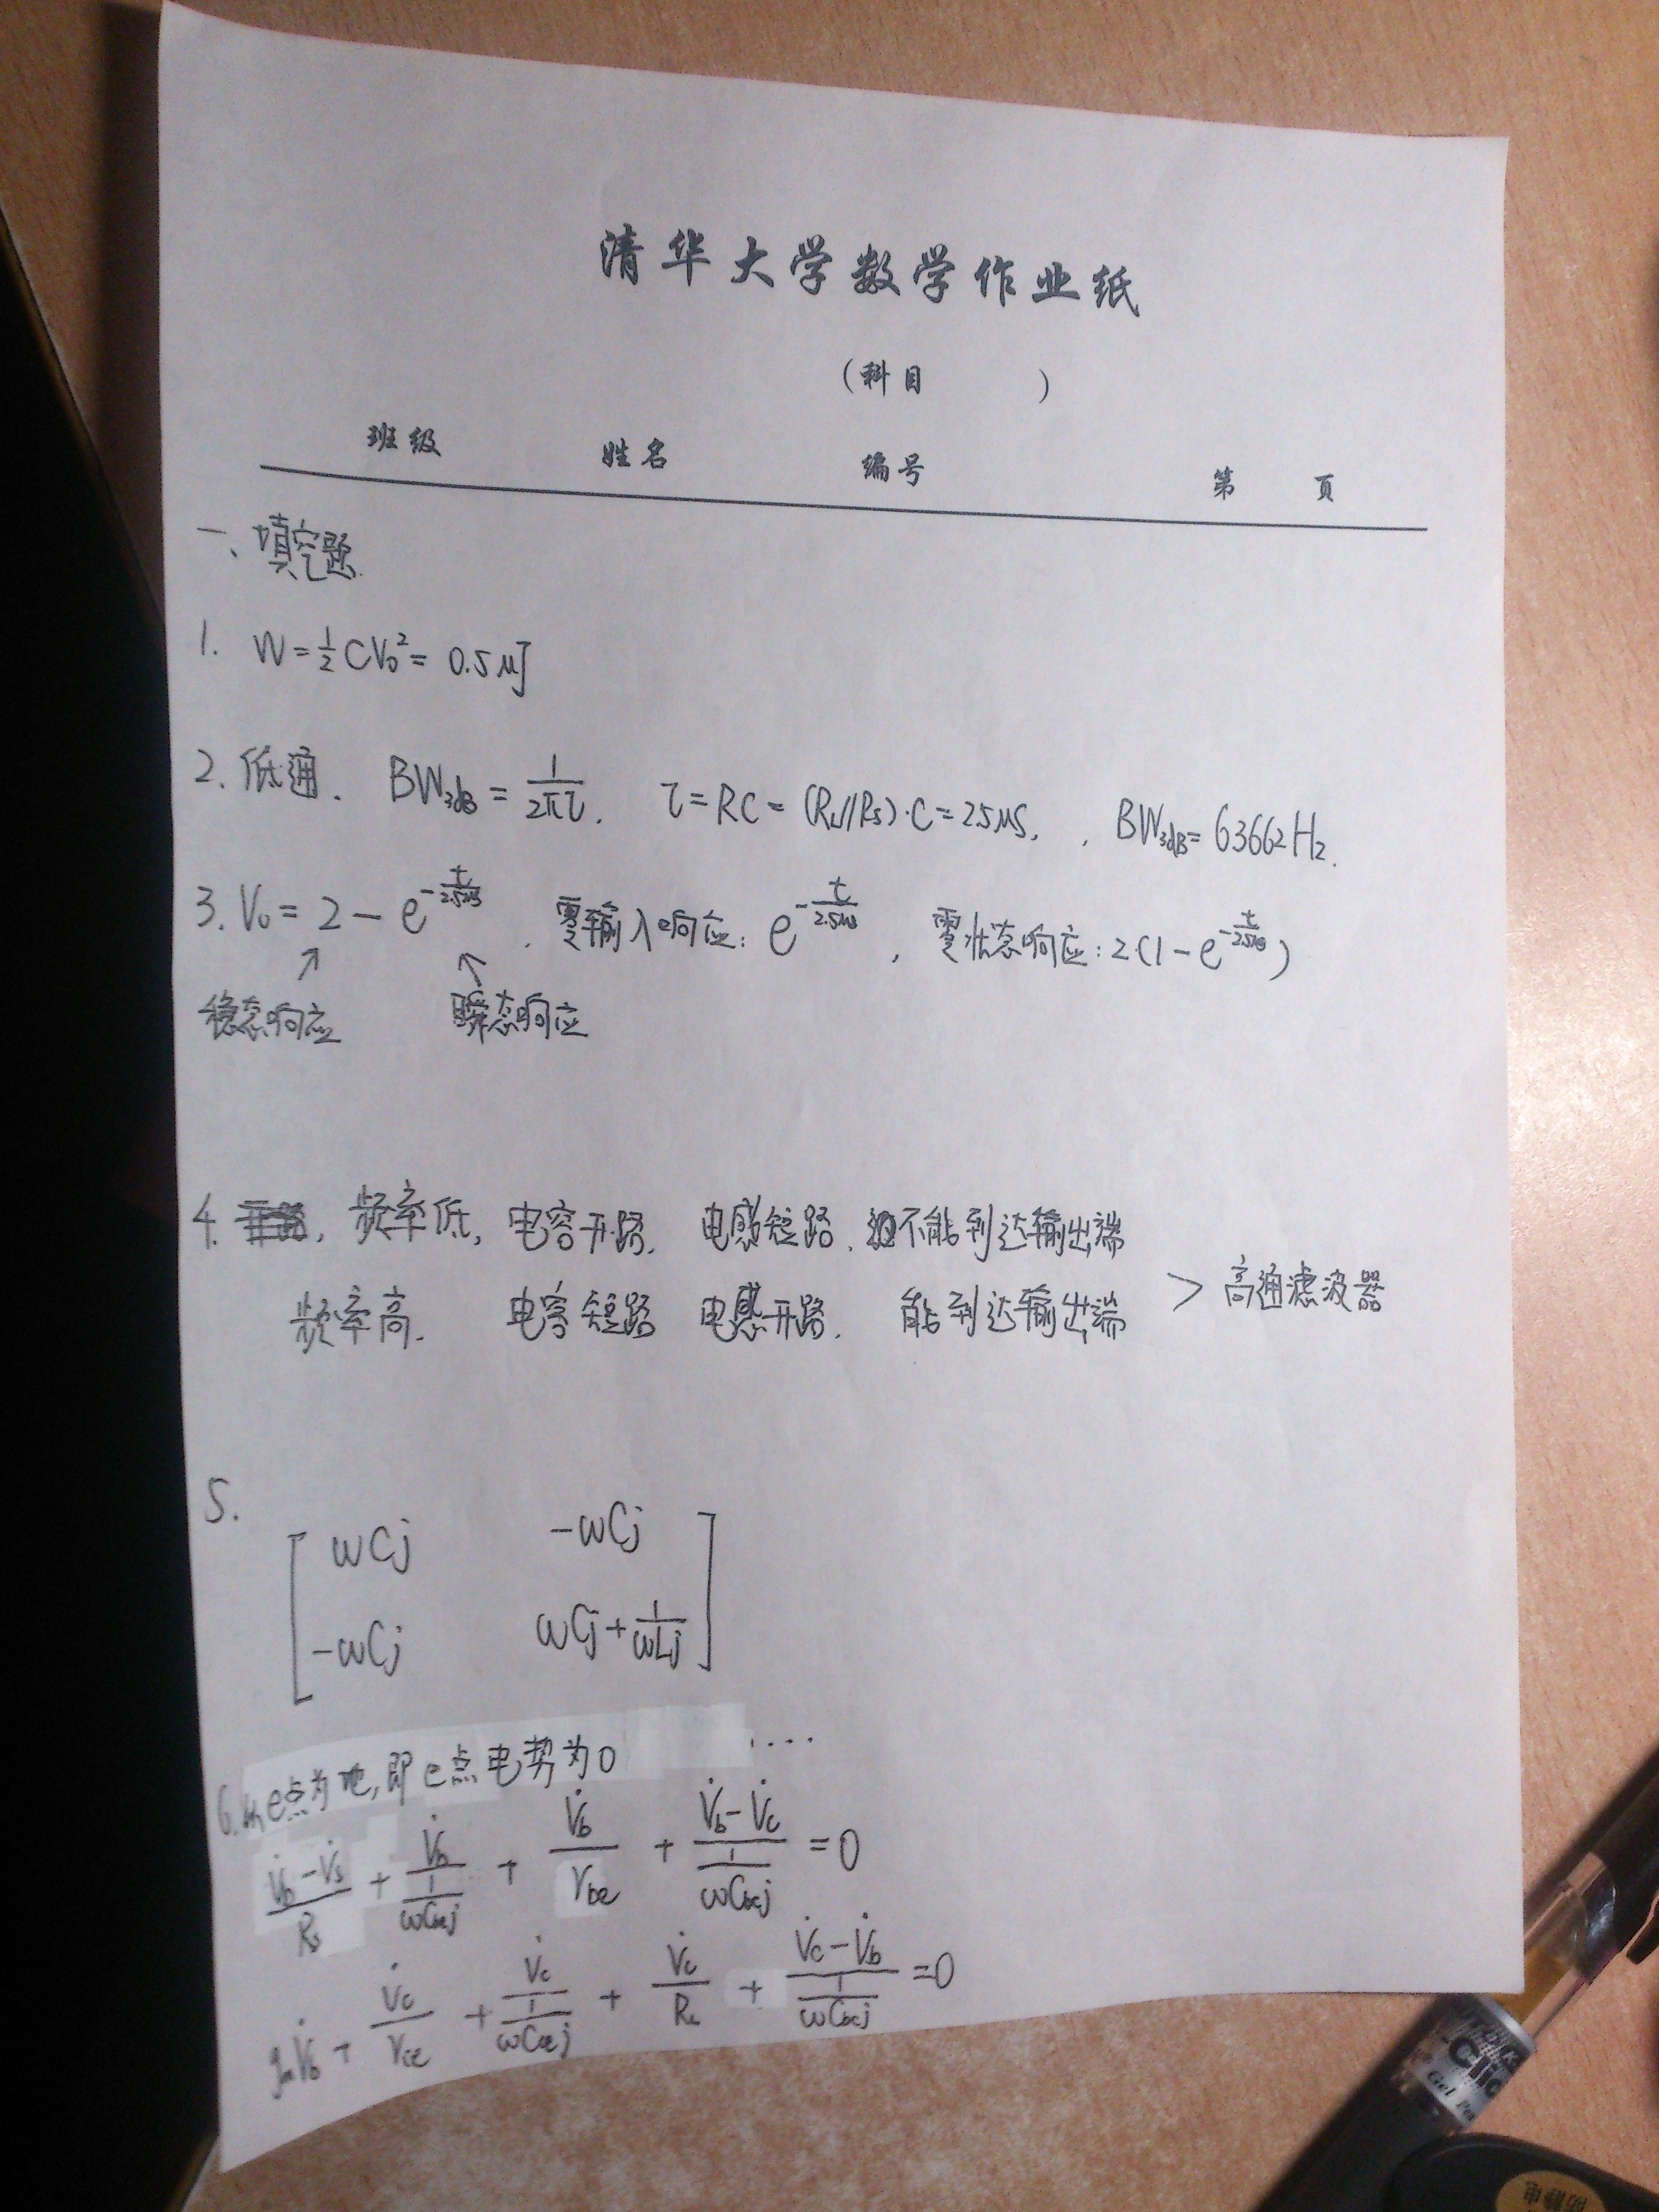 清华大学数学作业纸
(科目 )
班级 姓名 编号 第 页
一、填空题
1. W=½CV₀²= 0.5μJ
2. 低通. BW₃dB = 1/(2πτ). τ=RC=(R_L//R_S)·C=2.5μS, , BW₃dB=63662Hz.
3. V₀= 2 − e^(−t/2.5μs) , 零输入响应: e^(−t/2.5μs) , 零状态响应: 2(1−e^(−t/2.5μs))
↗ ↖
稳态响应 瞬态响应
4. 频率低, 电容开路. 电感短路. 不能到达输出端
频率高. 电容短路 电感开路. 能到达输出端 > 高通滤波器
5.
[ ωCj −ωCj
−ωCj ωCj+1/(ωLj) ]
6. e点为地,即e点电势为0 ····
(V̇b−V̇s)/Rs + V̇b/(1/(ωCbej)) + V̇b/rbe + (V̇b−V̇c)/(1/(ωCbcj)) =0
gmV̇b + V̇c/rce + V̇c/(1/(ωCcej)) + V̇c/RL + (V̇c−V̇b)/(1/(ωCbcj)) =0
Clic
Gel Pen
防静电